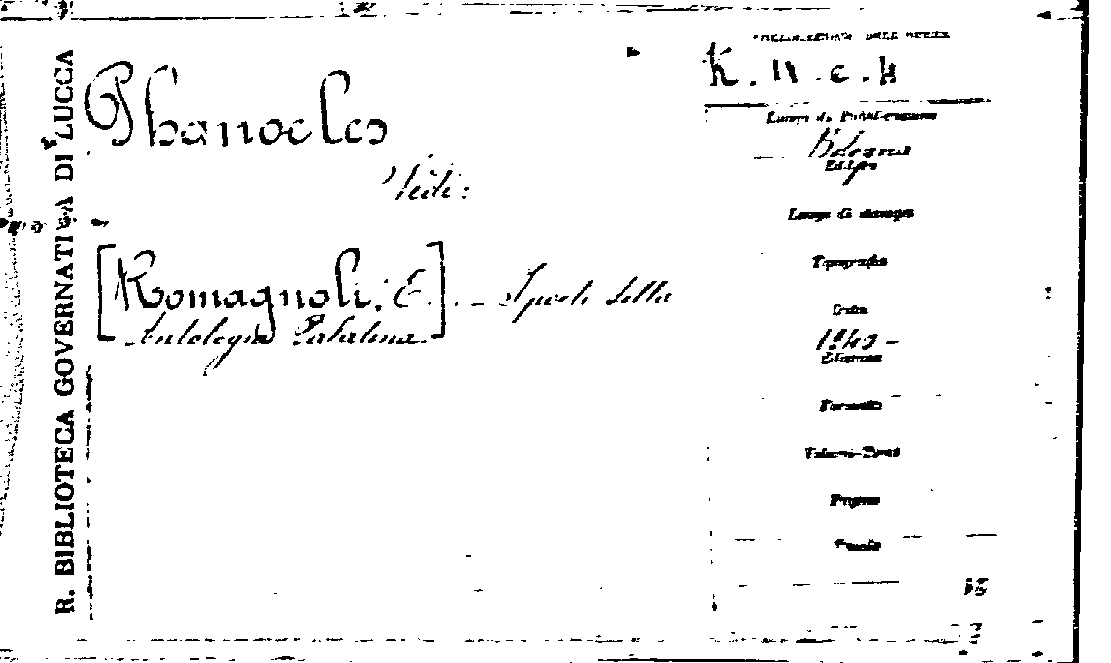 R. BIBLIOTECA GOVERNATIVA DI LUCCA
Phanocles
Vedi:
[Romagnoli, E.] - Ipoeti della
Antologia Palatina
COLLOCAZIONE DELL'OPERA
K. II. c. 4
Luogo di Pubblicazione
Bologna
Editore
Luogo di stampa
Tipografia
Data
Edizione
Formato
Volumi-Tomi
Pagine
Tavole